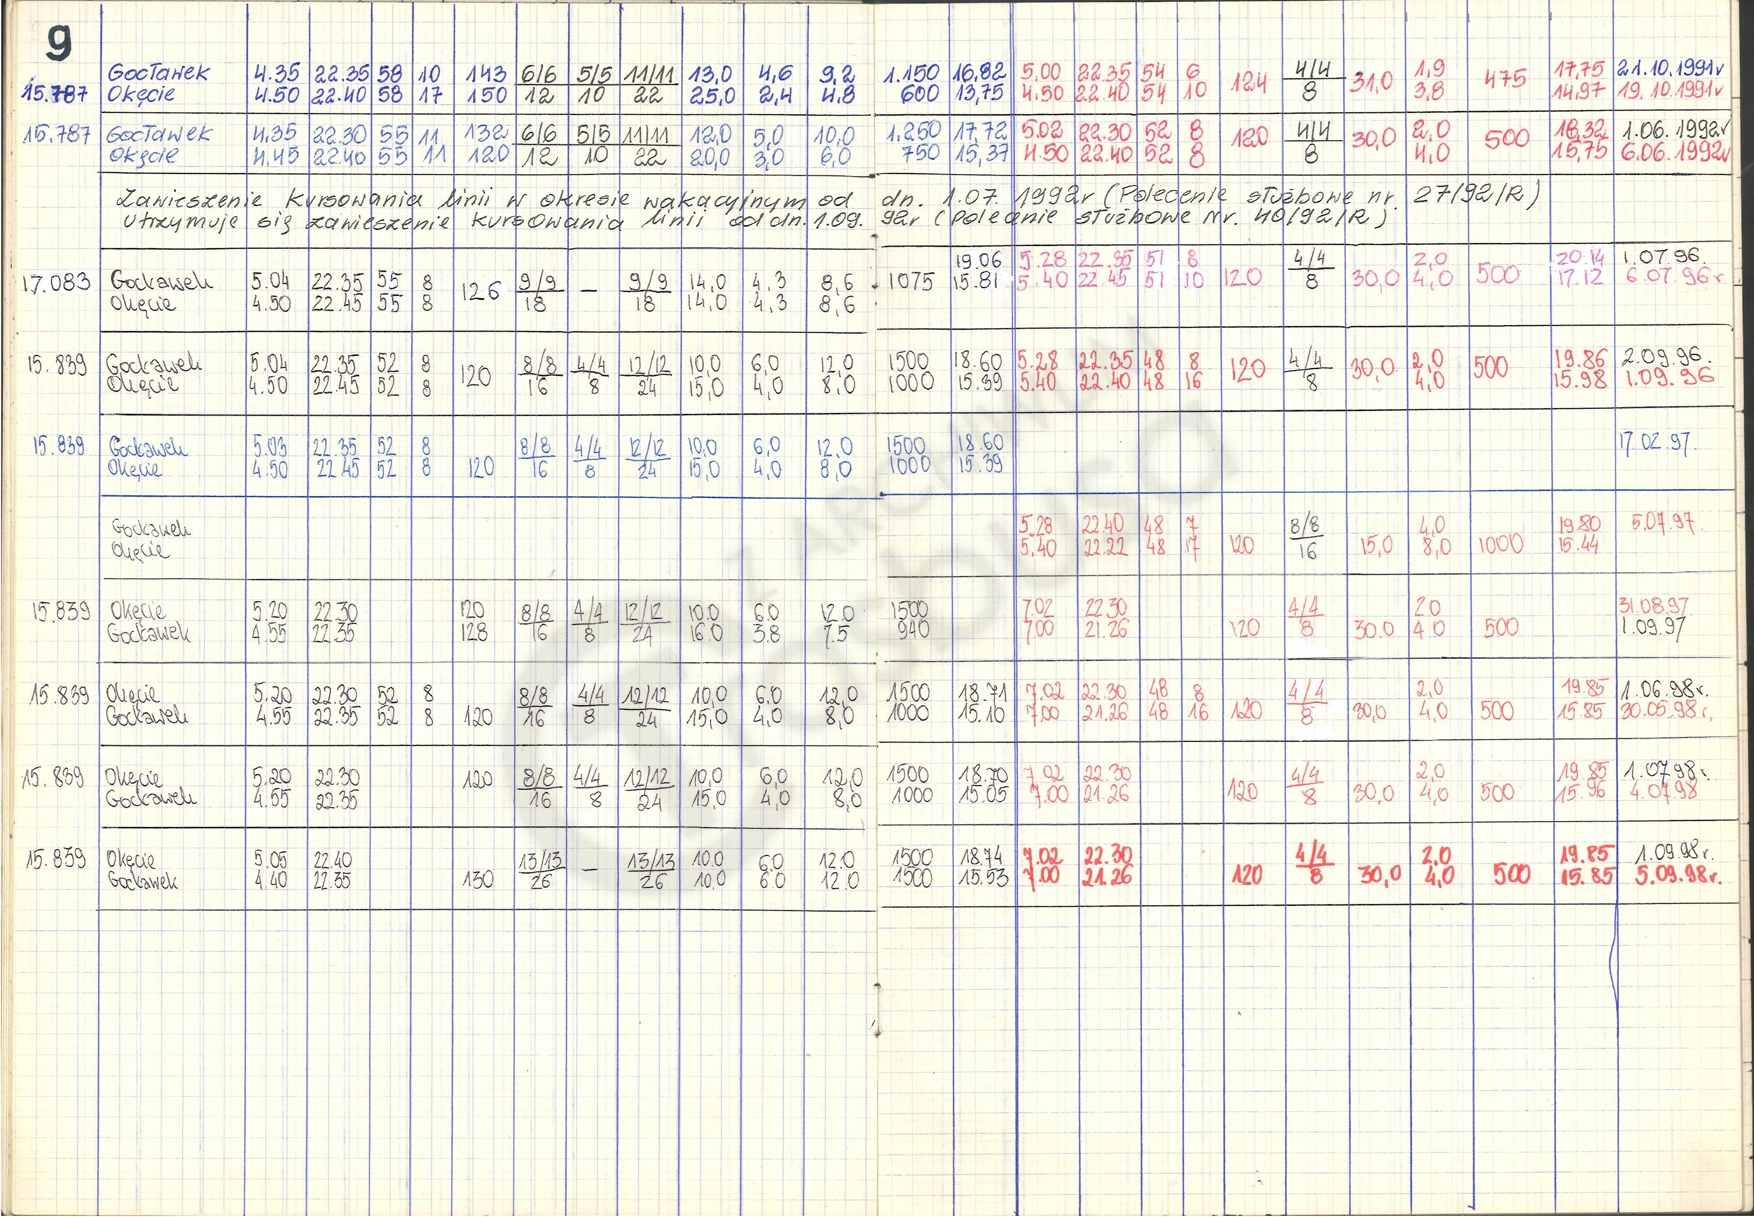 9
Gocławek 4.35 22.35 58 10 143 6/6 5/5 11/11 13,0 4,6 9,2 1.150 16,82 5.00 22.35 54 6 4/4 1,9 17,75 21.10.1991r
15.787 Okęcie 4.50 22.40 58 17 150 12 10 22 25,0 2,4 4,8 600 13,75 4.50 22.40 54 10 124 8 31,0 3,8 475 14,97 19.10.1991r
15.787 Gocławek 4.35 22.30 55 11 132 6/6 5/5 11/11 12,0 5,0 10,0 1.250 17,72 5.02 22.30 52 8 120 4/4 30,0 2,0 500 18,32 1.06.1992r
Okęcie 4.45 22.40 55 11 120 12 10 22 20,0 3,0 6,0 750 15,37 4.50 22.40 52 8 8 4,0 15,75 6.06.1992r
Zawieszenie kursowania linii w okresie wakacyjnym od dn. 1.07. 1992r (Polecenie służbowe nr. 27/92/R)
Utrzymuje się zawieszenie kursowania linii od dn. 1.09. 92r (polecenie służbowe nr. 40/92/R)
19.06 5.28 22.35 51 8 4/4 2,0 20.14 1.07.96.
17.083 Gocławek 5.04 22.35 55 8 126 9/9 – 9/9 14,0 4,3 8,6 1075 15.81 5.40 22.45 51 10 120 8 30,0 4,0 500 17.12 6.07.96r.
Okęcie 4.50 22.45 55 8 18 18 14,0 4,3 8,6
15.839 Gocławek 5.04 22.35 52 8 8/8 4/4 12/12 10,0 6,0 12,0 1500 18.60 5.28 22.35 48 8 4/4 2,0 19.86 2.09.96.
Okęcie 4.50 22.45 52 8 120 16 8 24 15,0 4,0 8,0 1000 15.39 5.40 22.40 48 16 120 8 30,0 4,0 500 15.98 1.09.96
15.839 Gocławek 5.03 22.35 52 8 8/8 4/4 12/12 10,0 6,0 12,0 1500 18.60 17.02.97.
Okęcie 4.50 22.45 52 8 120 16 8 24 15,0 4,0 8,0 1000 15.39
Gocławek 5.28 22.40 48 7 8/8 4,0 19.80 5.07.97.
Okęcie 5.40 22.22 48 17 120 16 15,0 8,0 1000 15.44
15.839 Okęcie 5.20 22.30 120 8/8 4/4 12/12 10.0 6.0 12.0 1500 7.02 22.30 4/4 2.0 31.08.97
Gocławek 4.55 22.35 128 16 8 24 16.0 3.8 7.5 940 7.00 21.26 120 8 30.0 4.0 500 1.09.97
15.839 Okęcie 5.20 22.30 52 8 8/8 4/4 12/12 10,0 6.0 12,0 1500 18.71 7.02 22.30 48 8 4/4 2,0 19.85 1.06.98r.
Gocławek 4.55 22.35 52 8 120 16 8 24 15,0 4,0 8,0 1000 15.10 7.00 21.26 48 16 120 8 30,0 4,0 500 15.85 30.05.98r.
15.839 Okęcie 5.20 22.30 120 8/8 4/4 12/12 10,0 6,0 12,0 1500 18.70 7.02 22.30 4/4 2,0 19.85 1.07.98r.
Gocławek 4.55 22.35 16 8 24 15,0 4,0 8,0 1000 15.05 7.00 21.26 120 8 30,0 4,0 500 15.96 4.07.98
15.839 Okęcie 5.05 22.40 13/13 – 13/13 10.0 6.0 12.0 1500 18.74 7.02 22.30 4/4 2.0 19.85 1.09.98r.
Gocławek 4.40 22.35 130 26 26 10,0 6.0 12.0 1500 15.53 7.00 21.26 120 8 30,0 4,0 500 15.85 5.09.98r.
Z ARCHIWUM
Trasbusa